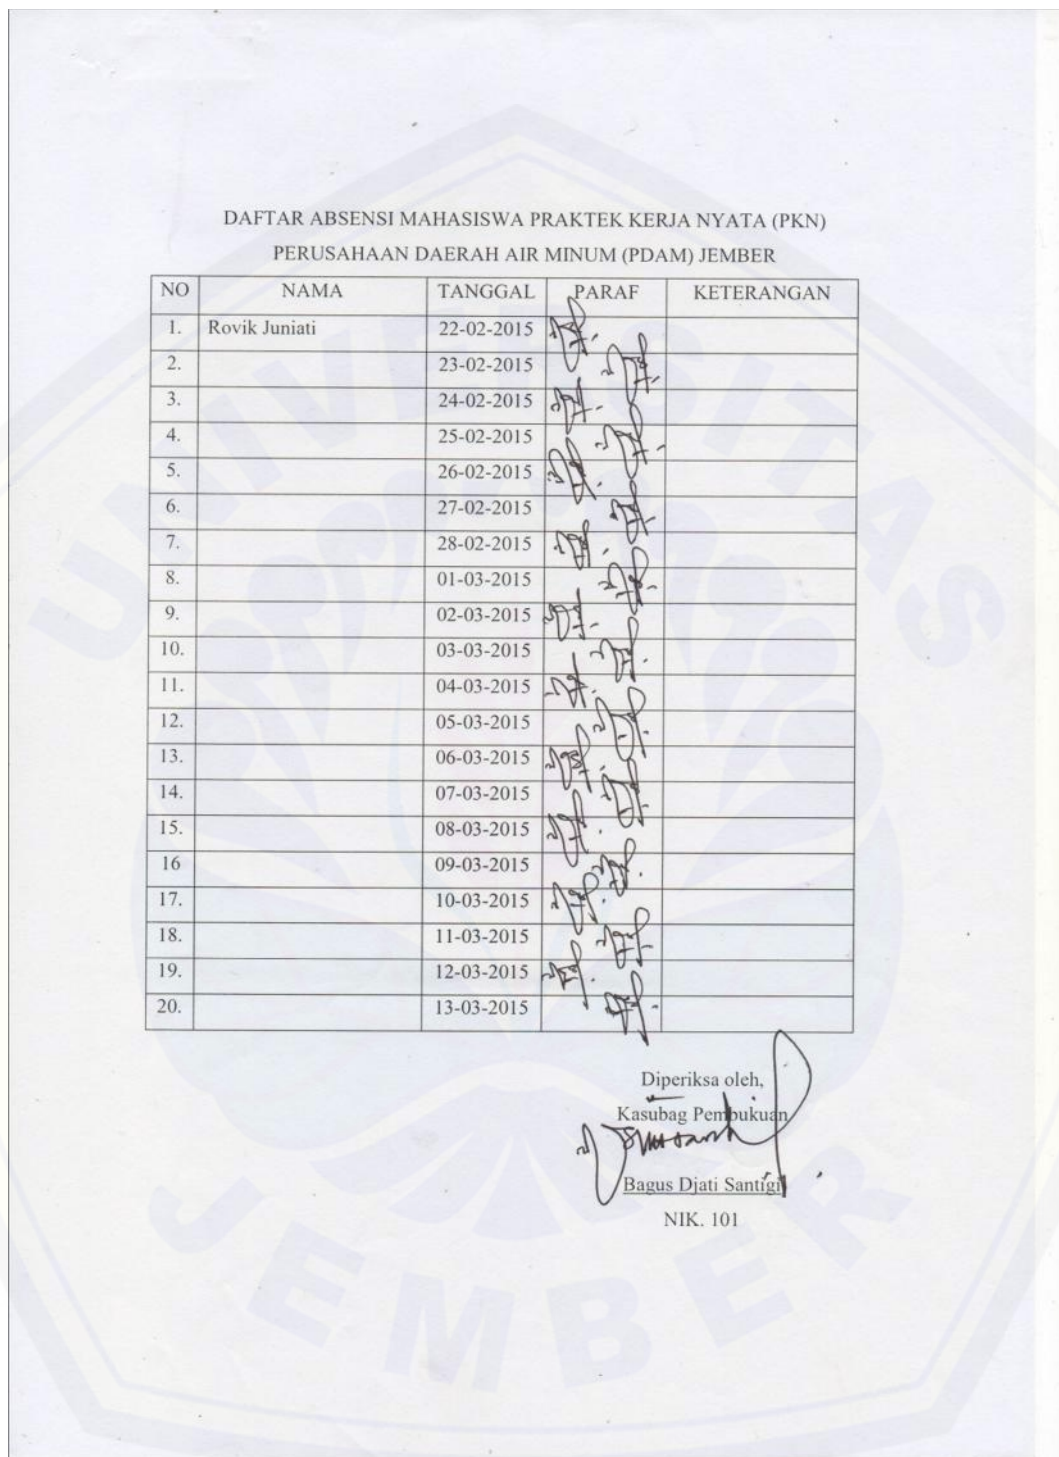 DAFTAR ABSENSI MAHASISWA PRAKTEK KERJA NYATA (PKN)
PERUSAHAAN DAERAH AIR MINUM (PDAM) JEMBER
NO NAMA TANGGAL PARAF KETERANGAN
1. Rovik Juniati 22-02-2015
2. 23-02-2015
3. 24-02-2015
4. 25-02-2015
5. 26-02-2015
6. 27-02-2015
7. 28-02-2015
8. 01-03-2015
9. 02-03-2015
10. 03-03-2015
11. 04-03-2015
12. 05-03-2015
13. 06-03-2015
14. 07-03-2015
15. 08-03-2015
16 09-03-2015
17. 10-03-2015
18. 11-03-2015
19. 12-03-2015
20. 13-03-2015
Diperiksa oleh,
Kasubag Pembukuan
Bagus Djati Santigi
NIK. 101
UNIVERSITAS
JEMBER